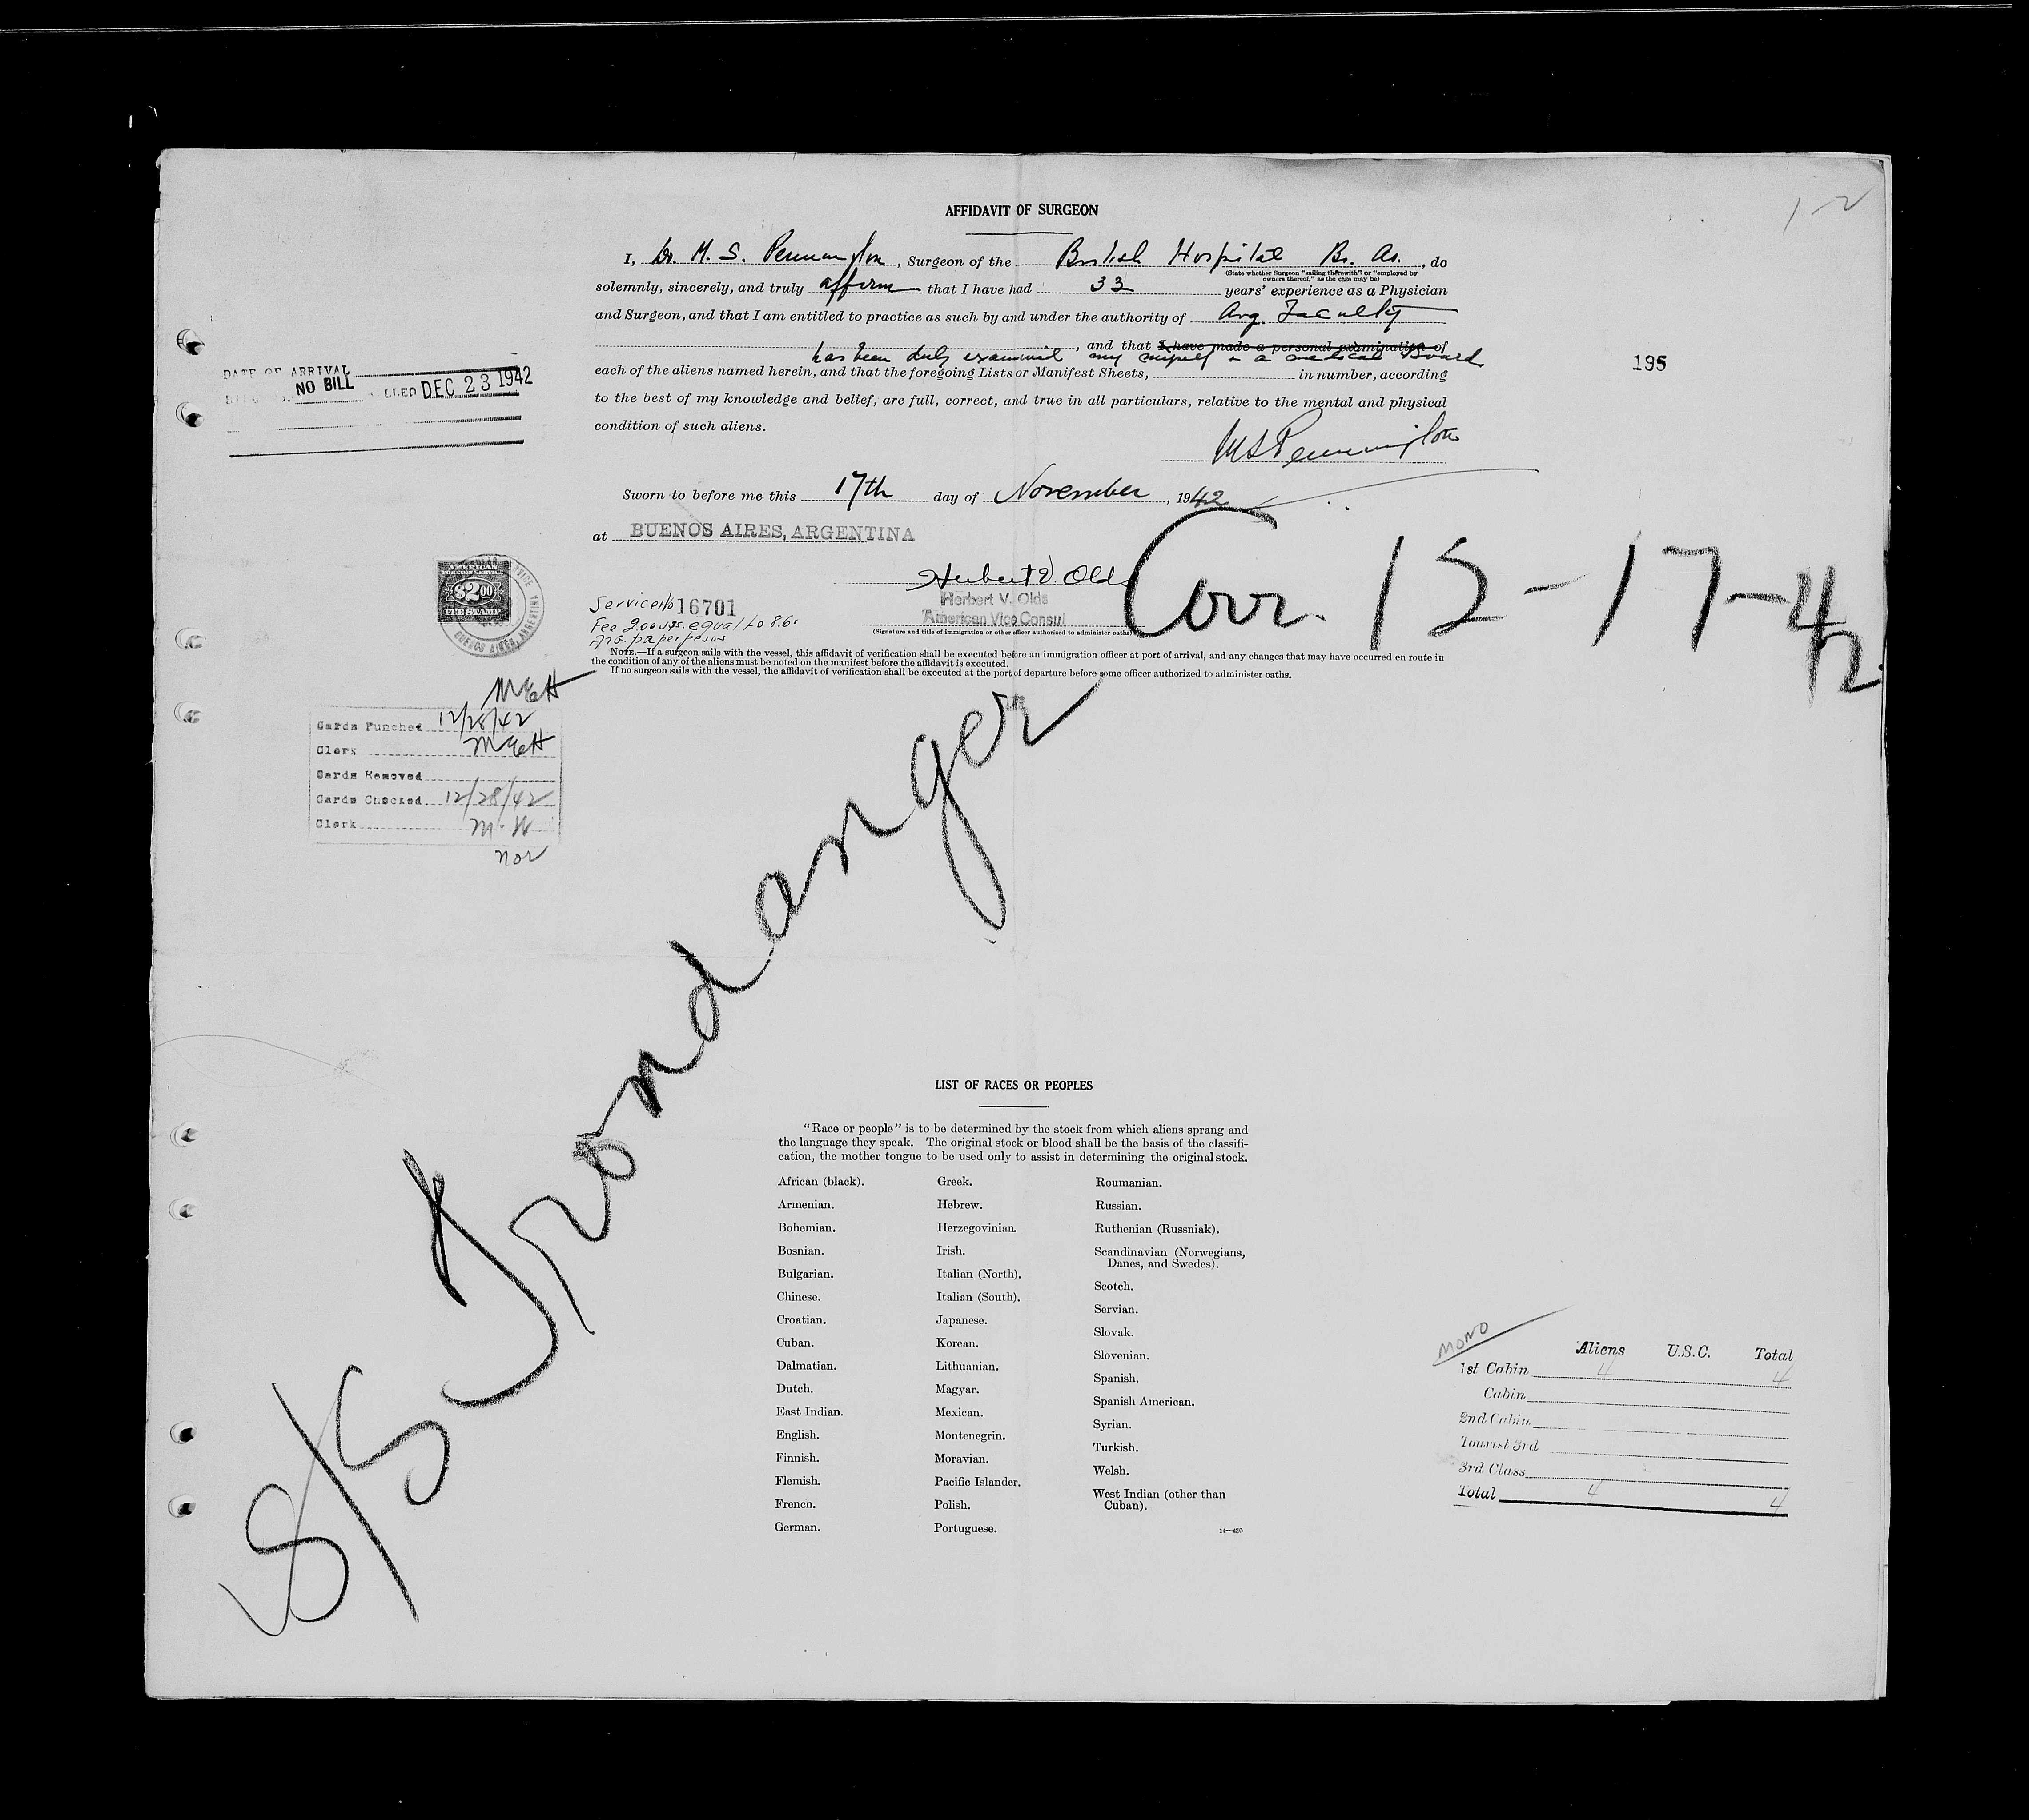 1-2
AFFIDAVIT OF SURGEON
I, Dr. M. S. Pennington, Surgeon of the British Hospital Bs. As., do
(State whether Surgeon "sailing therewith" or "employed by
owners thereof," as the case may be)
solemnly, sincerely, and truly affirm that I have had 33 years' experience as a Physician
and Surgeon, and that I am entitled to practice as such by and under the authority of Arg. Faculty
, and that I have made a personal examination of
has been duly examined my myself a medical Board
each of the aliens named herein, and that the foregoing Lists or Manifest Sheets, in number, according
to the best of my knowledge and belief, are full, correct, and true in all particulars, relative to the mental and physical
condition of such aliens.
195
DATE OF ARRIVAL
NO BILL DEC 23 1942
MSPennington
Sworn to before me this 17th day of November, 1942
at BUENOS AIRES, ARGENTINA
Herbert V. Olds
Herbert V. Olds
American Vice Consul
(Signature and title of immigration or other officer authorized to administer oaths)
Corr. 12-17-42
AMERICAN
$2.00
FEE STAMP
BUENOS AIRES, ARGENTINA
Service No 16701
Fee 2.00 U.S. equal to 8.60
Arg. paper pesos
NOTE.—If a surgeon sails with the vessel, this affidavit of verification shall be executed before an immigration officer at port of arrival, and any changes that may have occurred en route in
the condition of any of the aliens must be noted on the manifest before the affidavit is executed.
If no surgeon sails with the vessel, the affidavit of verification shall be executed at the port of departure before some officer authorized to administer oaths.
Cards Punched 12/28/42
Clerk
Cards Removed
Cards Checked 12/28/42
Clerk M.W
nor
S/S Trondanger
LIST OF RACES OR PEOPLES
"Race or people" is to be determined by the stock from which aliens sprang and
the language they speak. The original stock or blood shall be the basis of the classifi-
cation, the mother tongue to be used only to assist in determining the original stock.
African (black).
Armenian.
Bohemian.
Bosnian.
Bulgarian.
Chinese.
Croatian.
Cuban.
Dalmatian.
Dutch.
East Indian.
English.
Finnish.
Flemish.
French.
German.
Greek.
Hebrew.
Herzegovinian.
Irish.
Italian (North).
Italian (South).
Japanese.
Korean.
Lithuanian.
Magyar.
Mexican.
Montenegrin.
Moravian.
Pacific Islander.
Polish.
Portuguese.
Roumanian.
Russian.
Ruthenian (Russniak).
Scandinavian (Norwegians,
Danes, and Swedes).
Scotch.
Servian.
Slovak.
Slovenian.
Spanish.
Spanish American.
Syrian.
Turkish.
Welsh.
West Indian (other than
Cuban).
14—420
MONO
Aliens U.S.C. Total
1st Cabin 4 4
Cabin
2nd Cabin
Tourist 3rd
3rd Class
Total 4 4